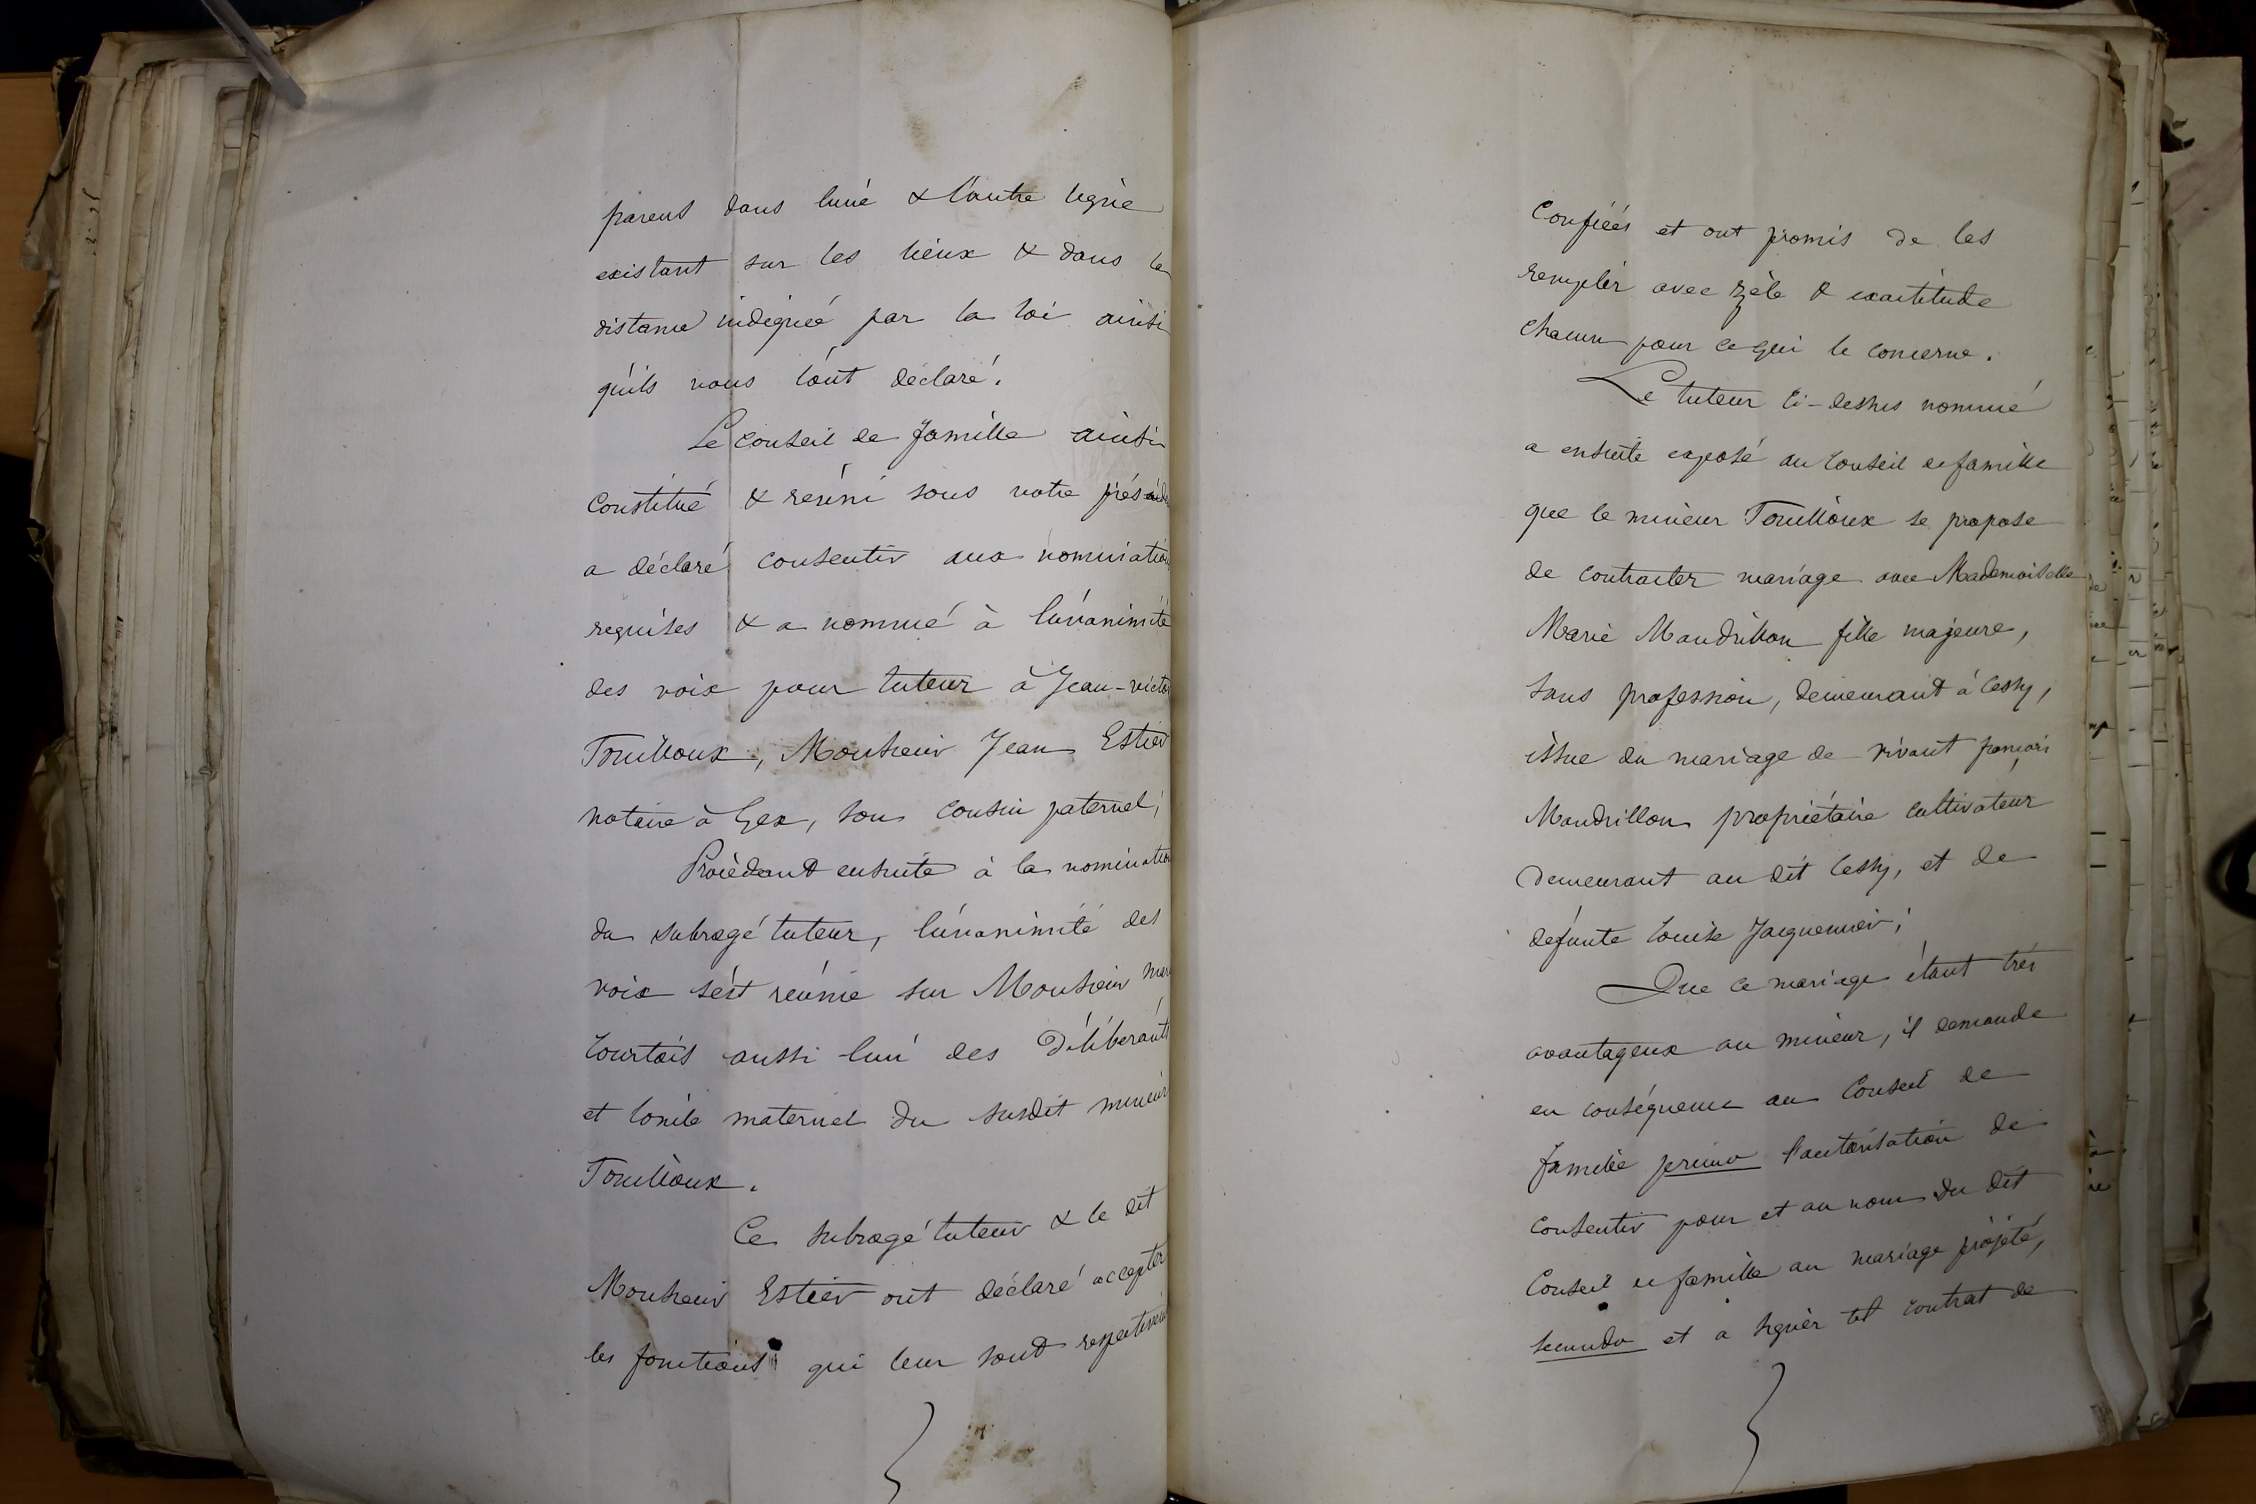 parens dans l'une & l'autre ligne
existant sur les lieux & dans la
distance indiquée par la loi ainsi
qu'ils nous l'ont déclaré.
Le conseil de famille ainsi
constitué & reúni sous notre
a déclaré consentir aux nomination
requises & a nommé à l'unanimité
des voix pour tuteur à Jean-victor
Touilloux, Monsieur Jean Estier
notaire à Gex, son cousin paternel;
Procédant ensuite à la nomination
du subrogé tuteur, l'unanimité des
voix s'est reúnie sur Monsieur
Courtois aussi l'un des Délibérants
et l'oncle maternel du susdit mineur
Touilloux.
Ce subrogé tuteur & le dit
Monsieur Estier ont déclaré accepter
les fonctions qui leur sont respectivem
Confiées et ont promis de les
remplir avec zèle & exactitude
chacun pour ce qui le concerne.
Le tuteur ci-dessus nommé
a ensuite exposé au Conseil de famille
que le mineur Touilloux se propose
de contracter mariage avec Mademoiselle
Marie Mandrillon fille majeure,
sans profession, demeurant à Cessy,
issue du mariage de vivant françois
Mandrillon propriétaire cultivateur
demeurant au dit Cessy, et de
défunte Louise Jacquemier;
Que ce mariage étant très
avantageux au mineur, il demande
en conséquence au Conseil de
famille primo l'autorisation de
consentir pour et au nom du dit
Conseil de famille au mariage projeté,
secundo et a signer tel contrat de